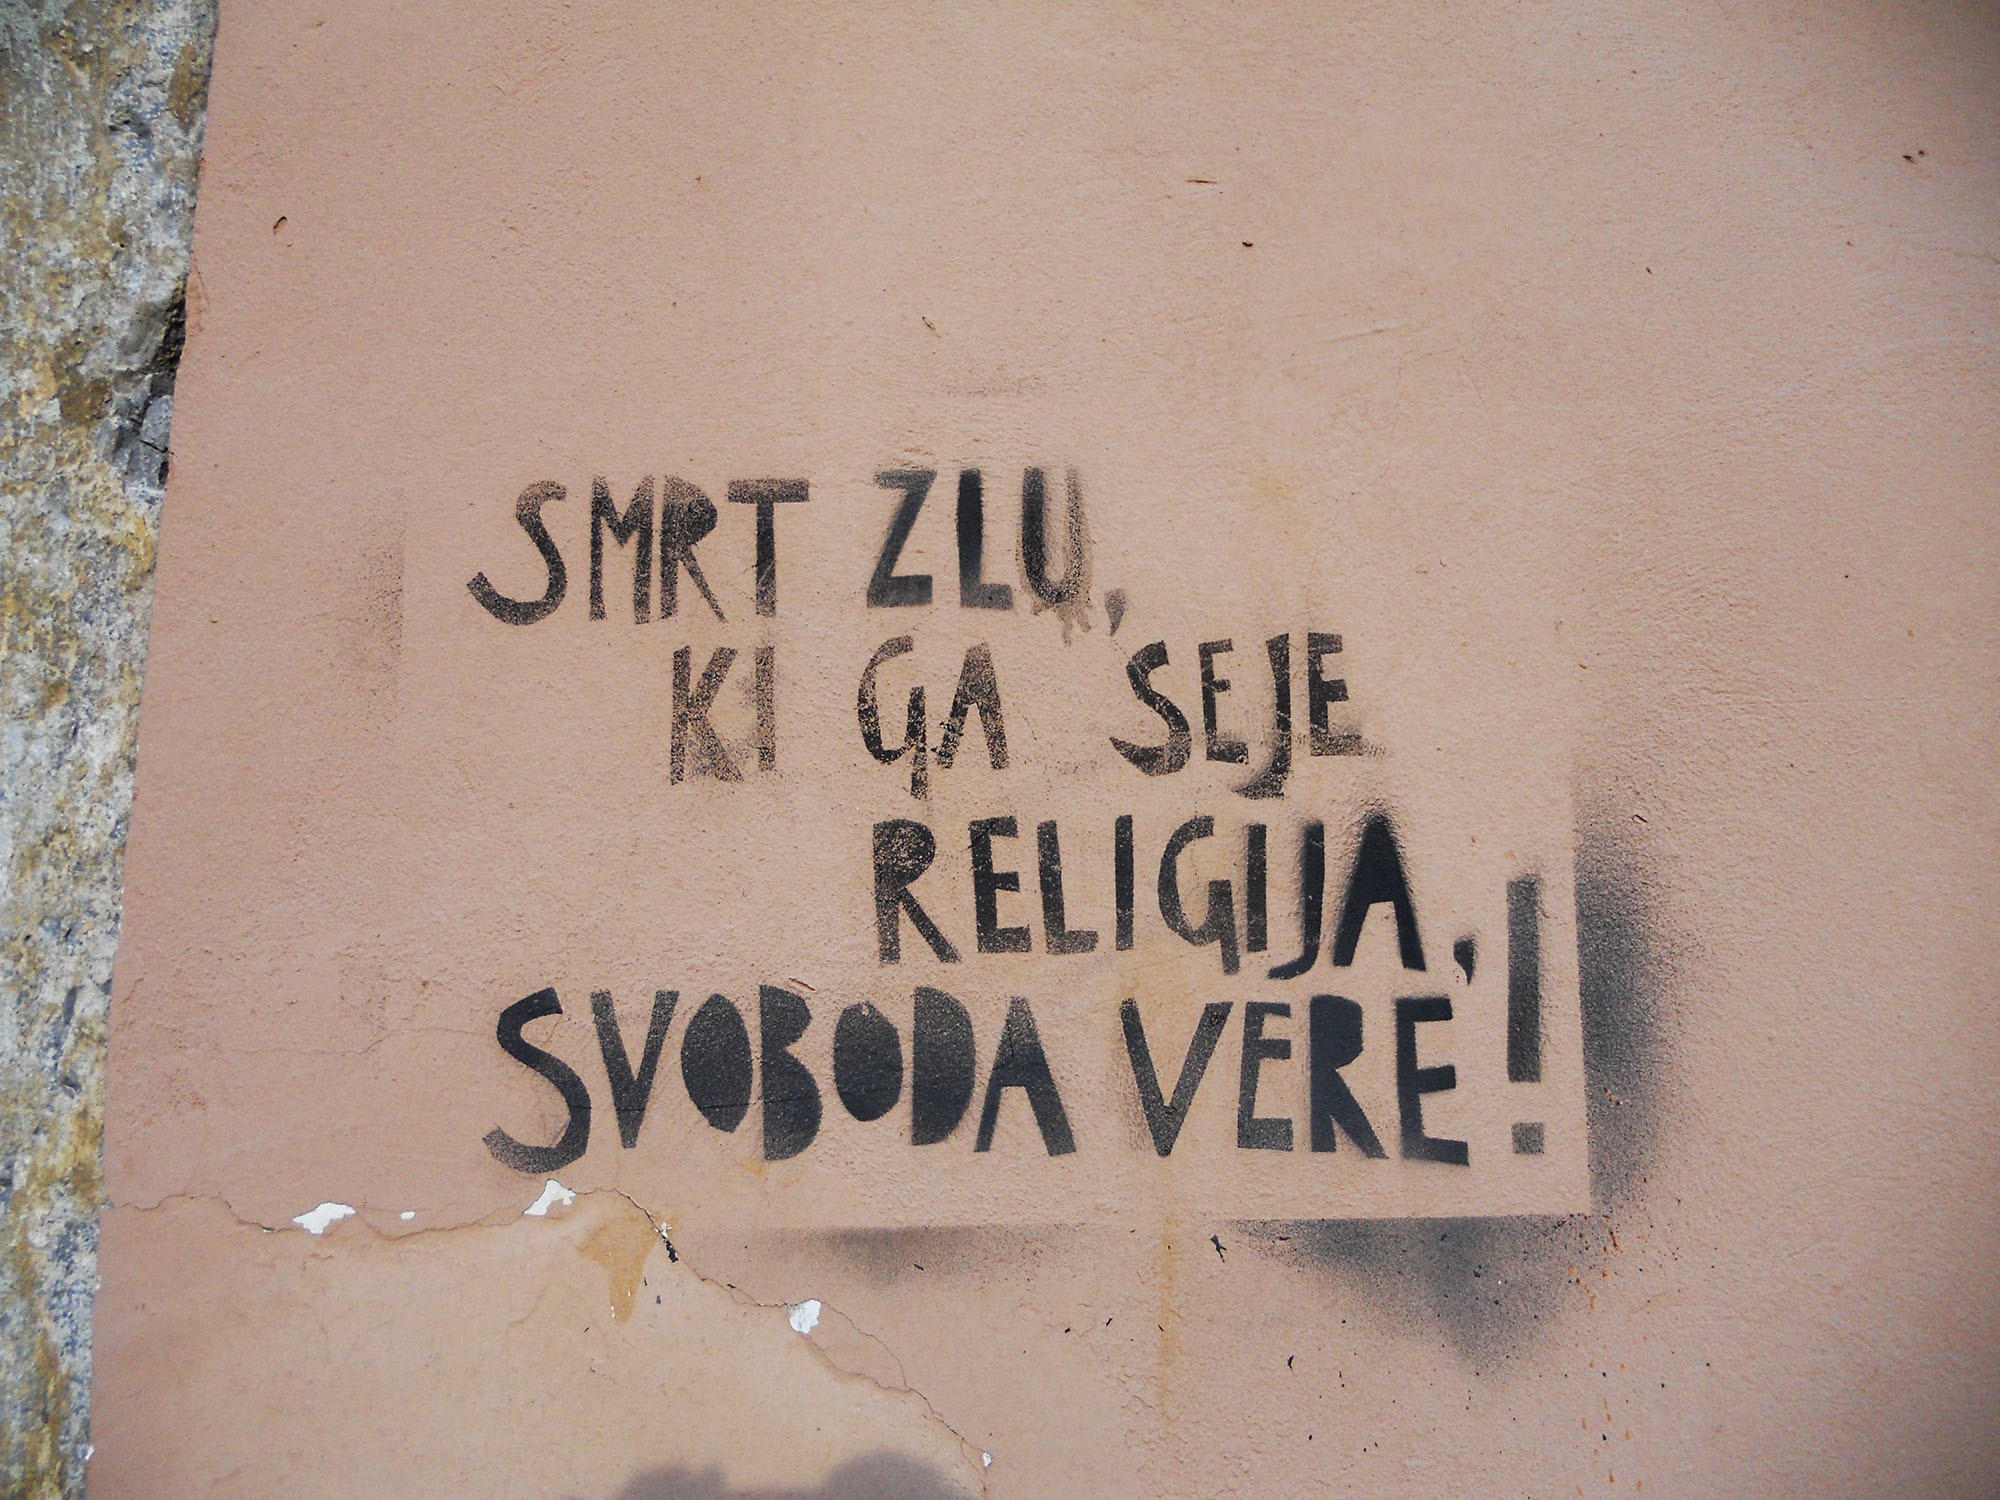 SMRT ZLU,
KI GA SEJE
RELIGIJA,
SVOBODA VERE!